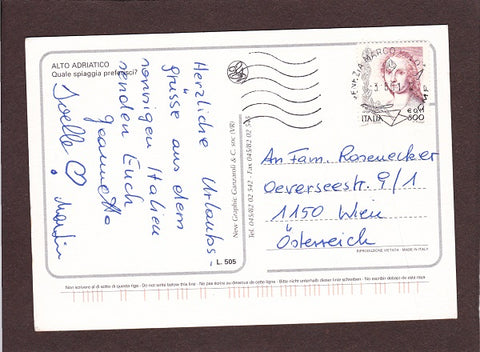 ALTO ADRIATICO
Quale spiaggia preferisci?
Herzliche Urlaubs
grüsse aus dem
sonnigen Italien
senden Euch
Jeannette
Joelle ♡ Martin
New Graphic Ganzaroli & C. snc (VR)
Tel. 045/82 02 542 - Fax 045/82 02 543
L. 505
VENEZIA MARCO POLO
ITALIA
600
An Fam. Rosenecker
Oeverseestr. 9/1
1150 Wien
Österreich
RIPRODUZIONE VIETATA - MADE IN ITALY
Non scrivere al di sotto di questa riga - Do not write below this line - Ne pas écrire au dessous de cette ligne - Bitte nicht unterhalb dieser linie schreiben - No escribir debajo de esta raya